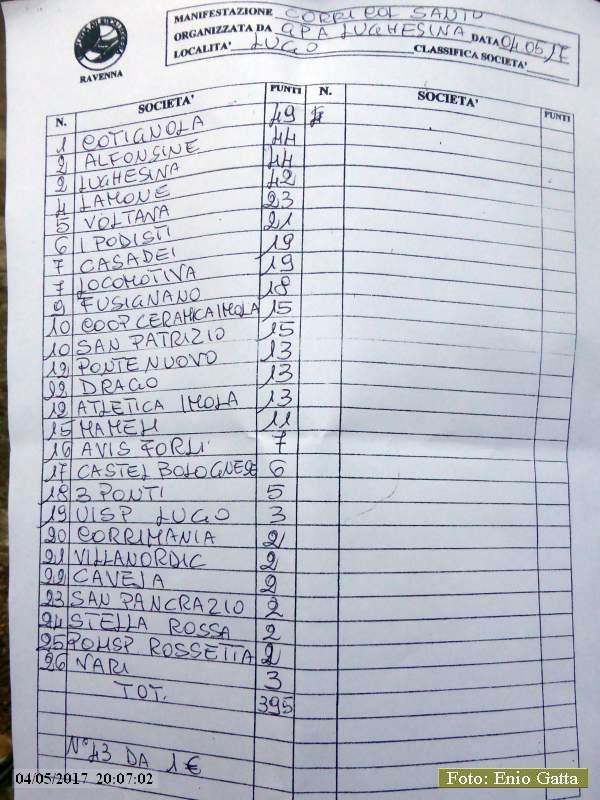 MANIFESTAZIONE CORRICOL SANTO
ORGANIZZATA DA GPA LUGHESINA DATA 04 05 17
LOCALITA' LUGO CLASSIFICA SOCIETA'
RAVENNA
N. SOCIETA' PUNTI N. SOCIETA' PUNTI
1 COTIGNOLA 49
2 ALFONSINE 44
2 LUGHESINA 44
4 LAMONE 42
5 VOLTANA 23
6 I PODISTI 21
7 CASADEI 19
7 LOCOMOTIVA 19
9 FUSIGNANO 18
10 COOP CERAMICA IMOLA 15
10 SAN PATRIZIO 15
12 PONTE NUOVO 13
12 DRAGO 13
12 ATLETICA IMOLA 13
15 MAMELI 11
16 AVIS FORLI' 7
17 CASTEL BOLOGNESE 6
18 3 PONTI 5
19 UISP LUGO 3
20 CORRIMANIA 2
21 VILLANORDIC 2
22 CAVEJA 2
23 SAN PANCRAZIO 2
24 STELLA ROSSA 2
25 POLISP ROSSETTA 2
26 VARI 3
TOT. 395
N° 43 DA 1 €
04/05/2017 20:07:02
Foto: Enio Gatta